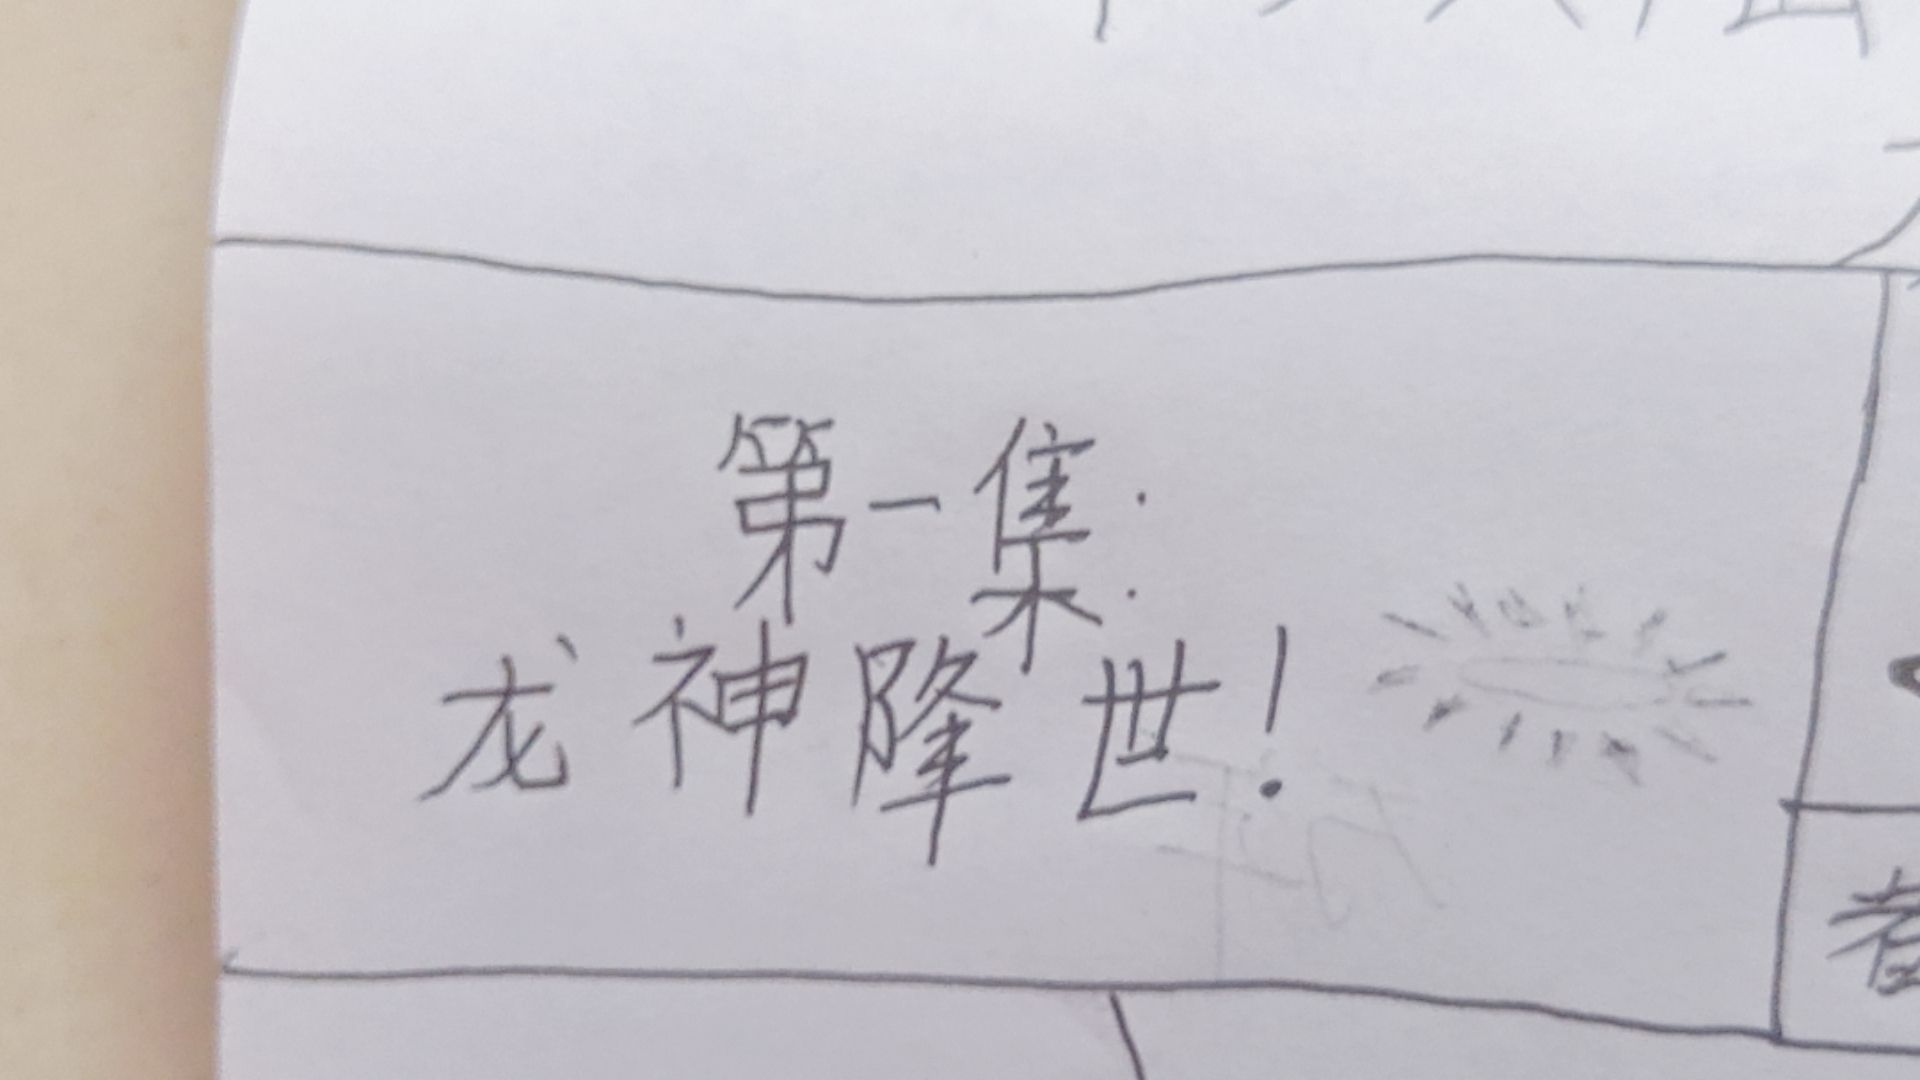 第一集:
龙神降世!